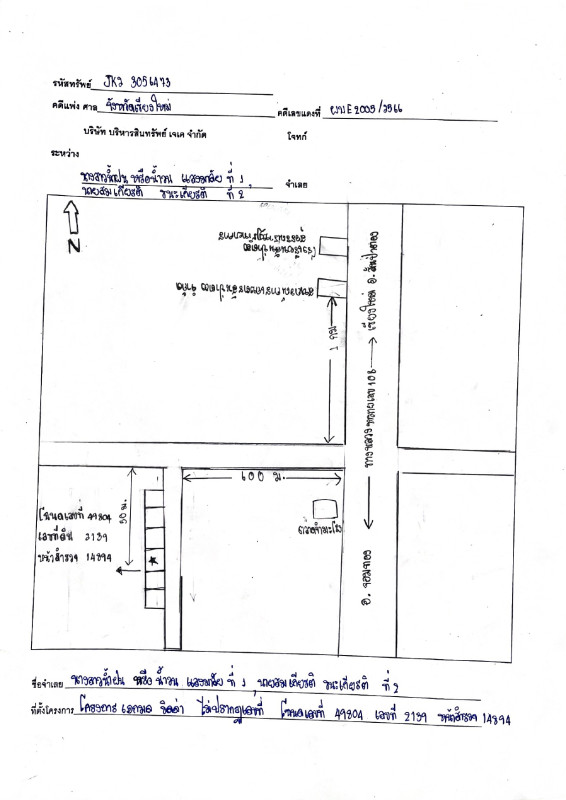 รหัสทรัพย์ JKJ 3056473
คดีแพ่ง ศาล จังหวัดเชียงใหม่ คดีเลขแดงที่ ผบE2005/2566
บริษัท บริหารสินทรัพย์ เจเค จำกัด โจทก์
ระหว่าง
นางสาวน้ำฝน หรือน้ำวน ที่ 1,
นายสมเกียรติ ชนะเกียรติ ที่ 2 จำเลย
N
1 กม
อ.สันป่าตอง
ทางหลวงหมายเลข 108
อ. จอมทอง
600 ม.
50 ม.
โฉนดเลขที่ 49804
เลขที่ดิน 2139
หน้าสำรวจ 14894
ชื่อจำเลย นางสาวน้ำฝน หรือ น้ำวน ที่ 1, นายสมเกียรติ ชนะเกียรติ ที่ 2
ที่ตั้งโครงการ โครงการ ไม่ปรากฏเลขที่ โฉนดเลขที่ 49804 เลขที่ 2139 หน้าสำรวจ 14894